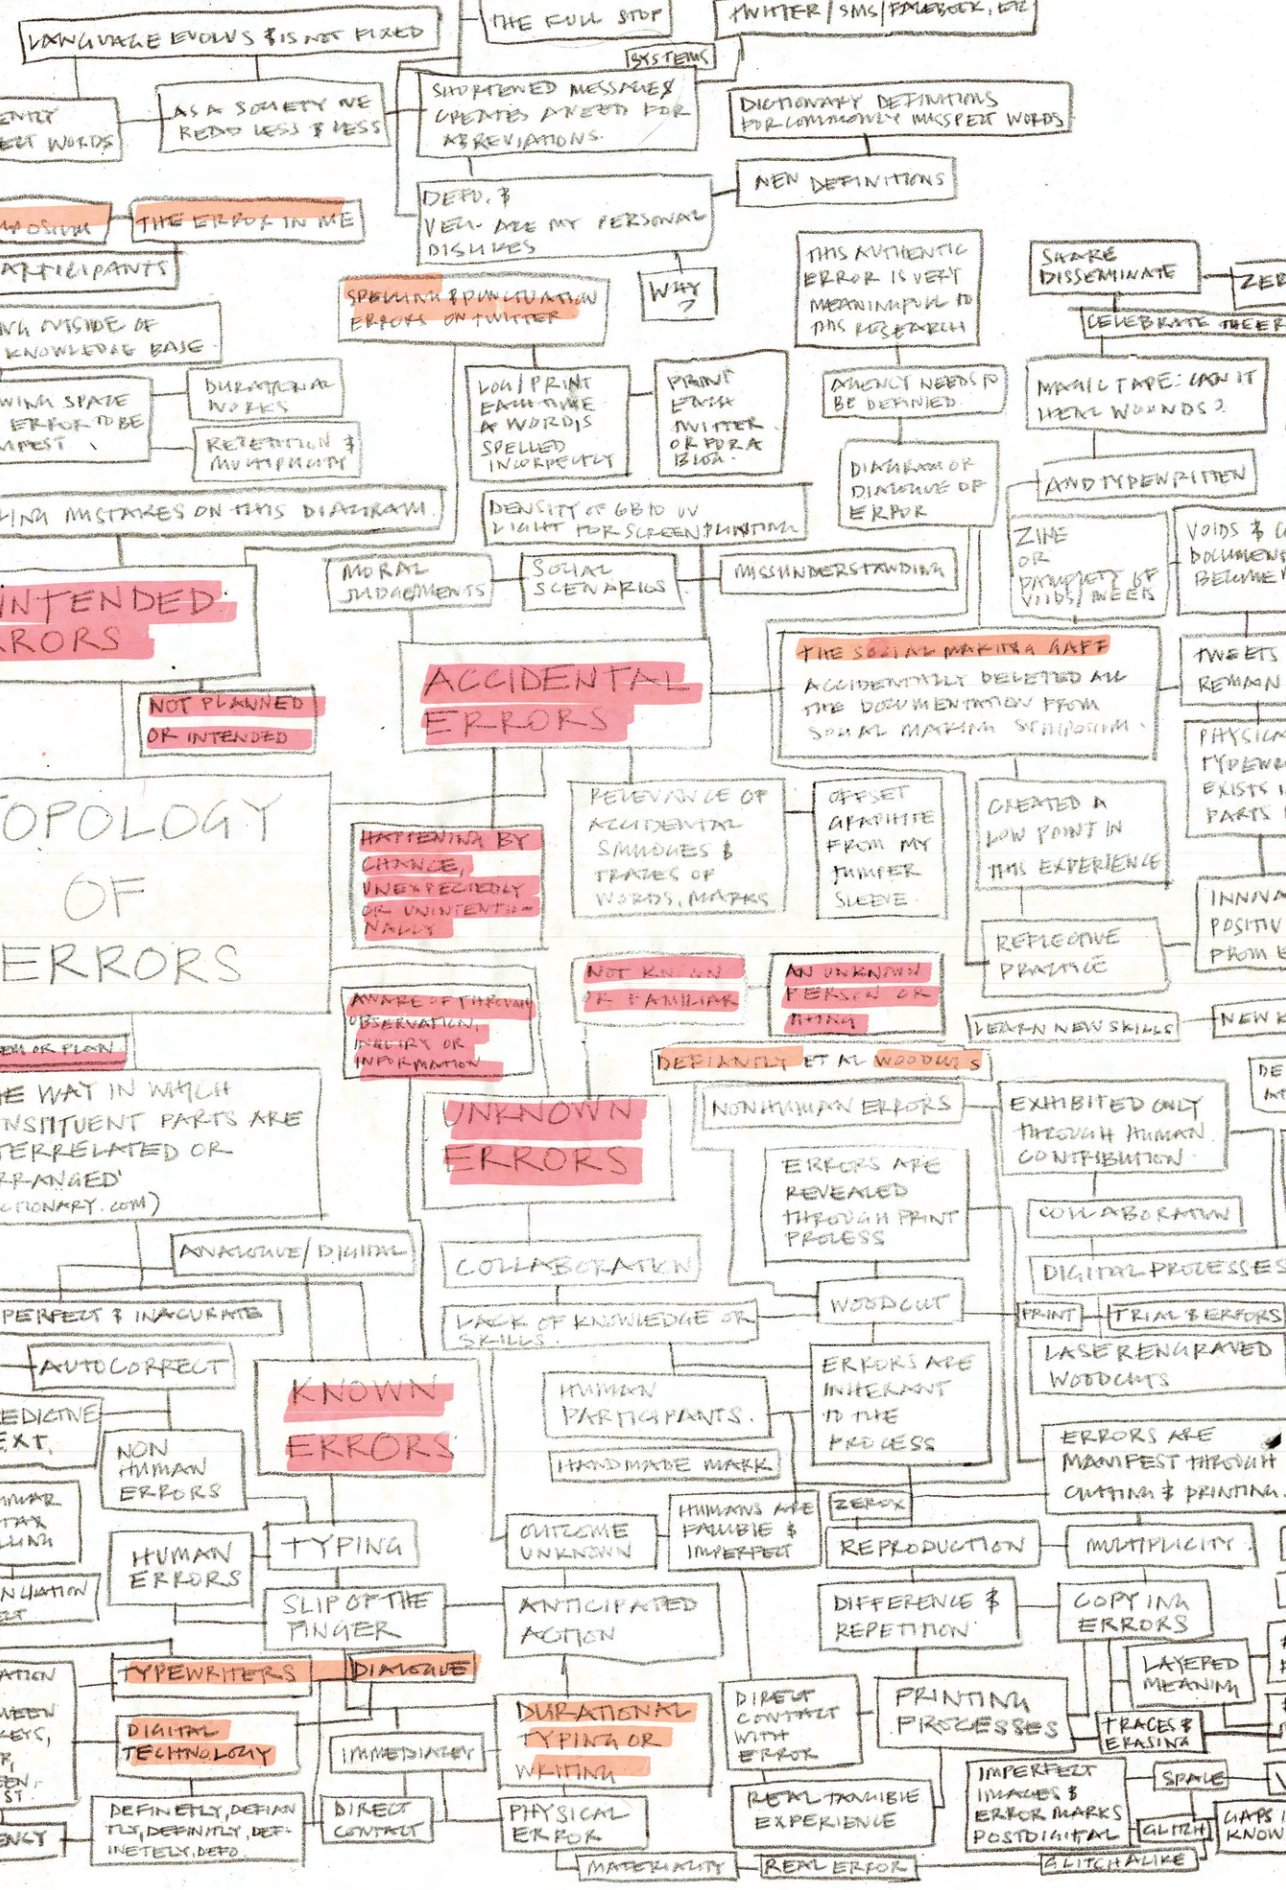 LANGUAGE EVOLVS & IS NOT FIXED
THE FULL STOP
TWITTER/SMS/FACEBOOK, ETC
SYSTEMS
ENTLY
ELT WORDS
AS A SOCIETY WE
READ LESS & LESS
SHORTENED MESSAGES
CREATES A NEED FOR
ABREVIATIONS.
DICTIONARY DEFINITIONS
FOR COMMONLY MISSPELT WORDS
NEW DEFINITIONS
DEFO. &
VERI. ARE MY PERSONAL
DISLIKES
WHY
?
POSIUM
THE ERROR IN ME
ARTICIPANTS
SPELLING & PUNCTUATION
ERRORS ON TWITTER
THIS AUTHENTIC
ERROR IS VERY
MEANINGFULL TO
THIS RESEARCH
SHARE
DISSEMINATE
ZER
CELEBRATE THE ER
NG OUTSIDE OF
KNOWLEDGE BASE
WING SPACE
ERROR TO BE
MFEST
DURATIONAL
WORKS
REPETITION &
MULTIPLICITY
LOG/PRINT
EACH TIME
A WORD IS
SPELLED
INCORRECTLY
PRINT
EACH
TWITTER
OR FOR A
BLOG.
AGENCY NEEDS TO
BE DEFINED.
MAGIC TAPE: CAN IT
HEAL WOUNDS?
DIAGRAM OR
DIALOGUE OF
ERROR
AND TYPEWRITTEN
LING MISTAKES ON THIS DIAGRAM.
DENSITY OF GB10 UV
LIGHT FOR SCREENPRINTING
ZINE
OR
PAMPLETY OF
VOIDS/
VOIDS &
DOCUMEN
BECOME
MORAL
JUDGEMENTS
SOCIAL
SCENARIOS
MISSUNDERSTANDING
INTENDED
RRORS
NOT PLANNED
OR INTENDED
ACCIDENTAL
ERRORS
THE SOCIAL MAKING GAFF
ACCIDENTALLY DELETED ALL
THE DOCUMENTATION FROM
SOCIAL MAKING SYMPOSIUM.
TWEETS
REMAIN
PHYSICA
TYPEWR
EXISTS I
PARTS
OPOLOGY
OF
ERRORS
HAPPENING BY
CHANCE,
UNEXPECTEDLY
OR UNINTENTIO-
NALLY
RELEVANCE OF
ACCIDENTAL
SMUDGES &
TRACES OF
WORDS, MARKS
OFFSET
GRAPHITE
FROM MY
JUMPER
SLEEVE.
CREATED A
LOW POINT IN
THIS EXPERIENCE
REFLECTIVE
PRACTICE
INNOVA
POSITIV
FROM E
AWARE OF THROUGH
OBSERVATION,
INQUIRY OR
INFORMATION
NOT KNOWN
OR FAMILIAR
AN UNKNOWN
PERSON OR
THING
LEARN NEW SKILLS
NEW K
DEFIANTLY ET AL WOODCUTS
EM OR PLAN
HE WAY IN WHICH
NSTITUENT PARTS ARE
TERRELATED OR
RRANGED'
CTIONARY.COM)
UNKNOWN
ERRORS
NONHUMAN ERRORS
EXHIBITED ONLY
THROUGH HUMAN
CONTRIBUTION.
DE
AT
ERRORS ARE
REVEALED
THROUGH PRINT
PROCESS
COLLABORATION
ANALOGUE/DIGITAL
COLLABORATION
DIGITAL PROCESSES
PERFECT & INACURATE
LACK OF KNOWLEDGE OR
SKILLS.
WOODCUT
PRINT
TRIAL & ERRORS
AUTOCORRECT
KNOWN
ERRORS
HUMAN
PARTICIPANTS.
ERRORS ARE
INHERANT
TO THE
PROCESS
LASER ENGRAVED
WOODCUTS
EDICTIVE
EXT.
NON
HUMAN
ERRORS
HANDMADE MARK
ERRORS ARE
MANIFEST THROUGH
CUTTING & PRINTING.
MMAR
TAX
LLING
NCIATION
HUMAN
ERRORS
TYPING
OUTCOME
UNKNOWN
HUMANS ARE
FALLIBLE &
IMPERFECT
ZEROX
REPRODUCTION
MULTIPLICITY
SLIP OF THE
FINGER
ANTICIPATED
ACTION
DIFFERENCE &
REPETITION
COPYING
ERRORS
ATION
WEEN
KEYS,
ST.
TYPEWRITERS
DIALOGUE
DIGITAL
TECHNOLOGY
IMMEDIACY
DURATIONAL
TYPING OR
WRITING
DIRECT
CONTACT
WITH
ERROR
PRINTING
PROCESSES
LAYERED
MEANING
TRACES &
ERASING
ENCY
DEFINETLY, DEFIAN
TLY, DEFINITLY, DEF-
INETELY, DEFO.
DIRECT
CONTACT
PHYSICAL
ERROR
REAL TANGIBLE
EXPERIENCE
IMPERFECT
IMAGES &
ERROR MARKS
POSTDIGITAL
SPACE
GLITCH
GAPS I
KNOW
MATERIALITY
REAL ERROR
GLITCH ALIKE